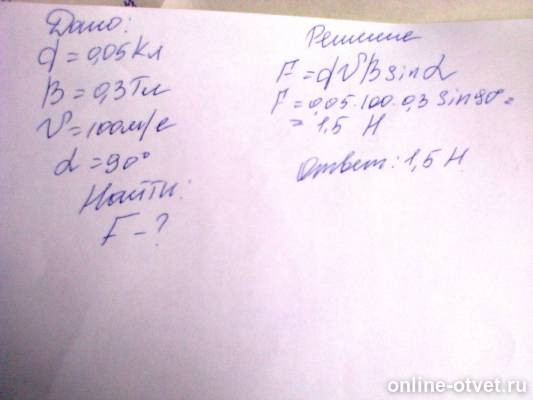 Дано:
q = 0,05 Кл
B = 0,3 Тл
V = 100 м/с
α = 90°
Найти:
F - ?
Решение
F = qVB sin α
F = 0,05 · 100 · 0,3 sin 90° =
= 1,5 Н
Ответ: 1,5 Н.
online-otvet.ru